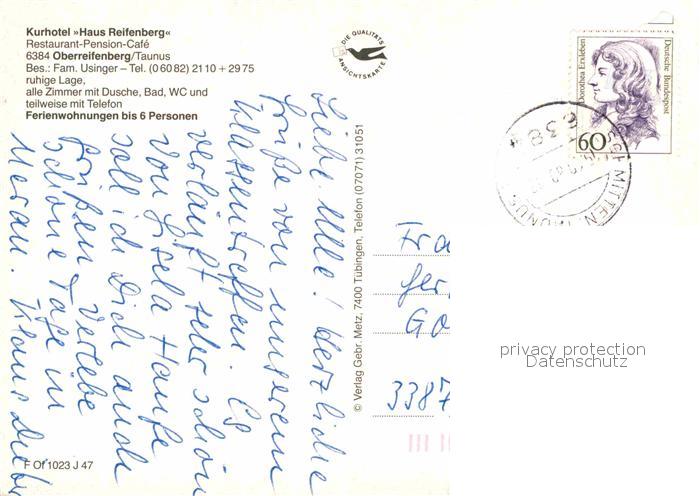 Kurhotel »Haus Reifenberg«
Restaurant-Pension-Café
6384 Oberreifenberg/Taunus
Bes.: Fam. Usinger – Tel. (0 60 82) 21 10 + 29 75
ruhige Lage,
alle Zimmer mit Dusche, Bad, WC und
teilweise mit Telefon
Ferienwohnungen bis 6 Personen
DIE QUALITÄTS
ANSICHTSKARTE
Dorothea Erxleben
Deutsche Bundespost
60
638
SCHMITTEN, TAUNUS
Liebe Ulle! Herzliche
Grüße von unserem
Klassentreffen. Es
verläuft sehr schön
von Gisela Hanße
soll ich Dich auch
grüßen. Verlebe
schöne Tage in
Meran. Klaus Dieter
© Verlag Gebr. Metz, 7400 Tübingen, Telefon (07071) 31051
Fra
Ger
Go
3387
privacy protection
Datenschutz
F Of 1023 J 47